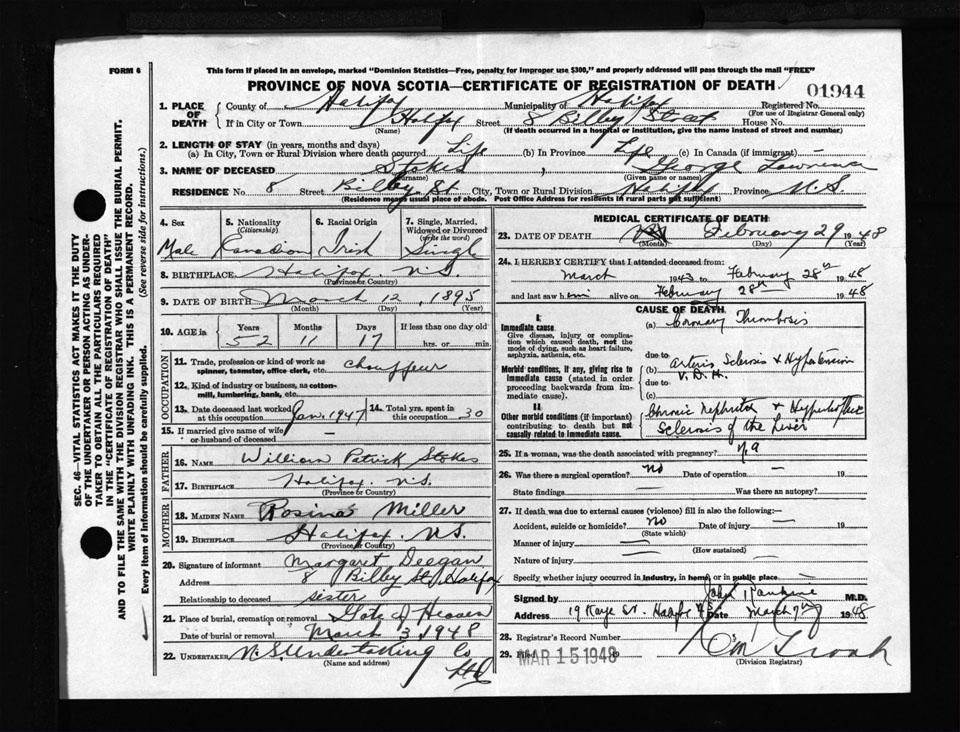 FORM 6
This form if placed in an envelope, marked "Dominion Statistics—Free, penalty for improper use $300," and properly addressed will pass through the mail "FREE"
PROVINCE OF NOVA SCOTIA—CERTIFICATE OF REGISTRATION OF DEATH
01944
1. PLACE OF DEATH
County of Halifax Municipality of Halifax Registered No.
(For use of Registrar General only)
If in City or Town Halifax Street 8 Bilby Street House No.
(Name) (If death occurred in a hospital or institution, give the name instead of street and number)
2. LENGTH OF STAY (in years, months and days)
(a) In City, Town or Rural Division where death occurred Life (b) In Province Life (c) In Canada (if immigrant) —
3. NAME OF DECEASED Stokes, George Lawrence
(Surname) (Given name or names)
RESIDENCE No. 8 Street Bilby St City, Town or Rural Division Halifax Province N.S.
(Residence means usual place of abode. Post Office Address for residents in rural parts not sufficient)
4. Sex Male
5. Nationality (Citizenship) Canadian
6. Racial Origin Irish
7. Single, Married, Widowed or Divorced (write the word) Single
8. BIRTHPLACE Halifax. N.S.
(Province or Country)
9. DATE OF BIRTH March 12, 1895
(Month) (Day) (Year)
10. AGE in Years Months Days If less than one day old
52 11 17 hrs. or min.
OCCUPATION
11. Trade, profession or kind of work as spinner, teamster, office clerk, etc. Chauffeur
12. Kind of industry or business, as cotton-mill, lumbering, bank, etc.
13. Date deceased last worked at this occupation Jan. 1947
14. Total yrs. spent in this occupation 30
15. If married give name of wife or husband of deceased —
FATHER
16. NAME William Patrick Stokes
17. BIRTHPLACE Halifax. N.S.
(Province or Country)
MOTHER
18. MAIDEN NAME Rosina Miller
19. BIRTHPLACE Halifax. N.S.
(Province or Country)
20. Signature of informant Margaret Deegan
Address 8 Bilby St. Halifax
Relationship to deceased sister
21. Place of burial, cremation or removal Gate of Heaven
Date of burial or removal March 3 1948
22. UNDERTAKER N.S. Undertaking Co Ltd
(Name and address)
MEDICAL CERTIFICATE OF DEATH
23. DATE OF DEATH February 29 1948
(Month) (Day) (Year)
24. I HEREBY CERTIFY that I attended deceased from:
March 1943 to February 28th 1948
and last saw him alive on February 28th 1948
CAUSE OF DEATH
I.
Immediate cause
Give disease, injury or complication which caused death, not the mode of dying, such as heart failure, asphyxia, asthenia, etc.
(a) Coronary Thrombosis
due to
Morbid conditions, if any, giving rise to immediate cause (stated in order proceeding backwards from immediate cause).
(b) Arterio Sclerosis & Hypertension
V.D.H.
due to
(c)
II
Other morbid conditions (if important) contributing to death but not causally related to immediate cause.
Chronic Nephritis &
Sclerosis of the Liver
25. If a woman, was the death associated with pregnancy?
26. Was there a surgical operation? no Date of operation — 19
State findings — Was there an autopsy?
27. If death was due to external causes (violence) fill in also the following:—
Accident, suicide or homicide? no Date of injury — 19
(State which)
Manner of injury —
(How sustained)
Nature of injury —
Specify whether injury occurred in industry, in home, or in public place —
Signed by John M.D.
Address 19 Kaye St. Halifax NS Date March 1948
28. Registrar's Record Number
29. Filed MAR 15 1948
(Division Registrar)
SEC. 46—VITAL STATISTICS ACT MAKES IT THE DUTY
OF THE UNDERTAKER OR PERSON ACTING AS UNDERTAKER
TO OBTAIN ALL THE PARTICULARS REQUIRED
IN THE "CERTIFICATE OF REGISTRATION OF DEATH"
AND TO FILE THE SAME WITH THE DIVISION REGISTRAR WHO SHALL ISSUE THE BURIAL PERMIT.
WRITE PLAINLY WITH UNFADING INK. THIS IS A PERMANENT RECORD.
Every item of information should be carefully supplied. (See reverse side for instructions.)